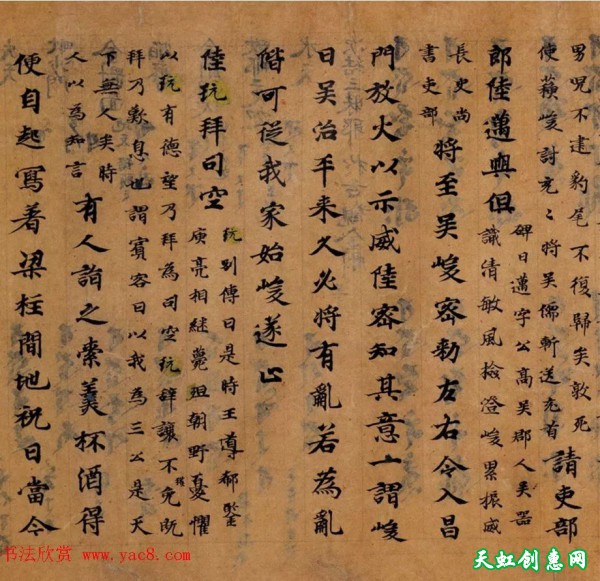 男咒不建豹尾不復歸矣敦死
使蘇峻討充〻將吳儒斬送充首
請吏部
郎陸邁與俱
碑曰邁字公高吳郡人矣器
識清敏風撿澄峻累振威
長史尚
書吏部
將至吳峻密勑左右令入昌
門放火以示威陸密知其意謂峻
日吴治平来久必將有亂若為亂
階可從我家始峻遂止
陸玩拜司空
玩別傳曰是時王導郗鑒
庾亮相継薨殂朝野憂懼
以玩有德望乃拜為司空玩辝讓不免既
拜乃歎息也謂賓客曰以我為三公是天
下無人矣時
人以為知言
有人詣之索美杯酒得
便自起寫著梁柱間地祝曰當令
书法欣赏 www.yac8.com
天虹创惠网